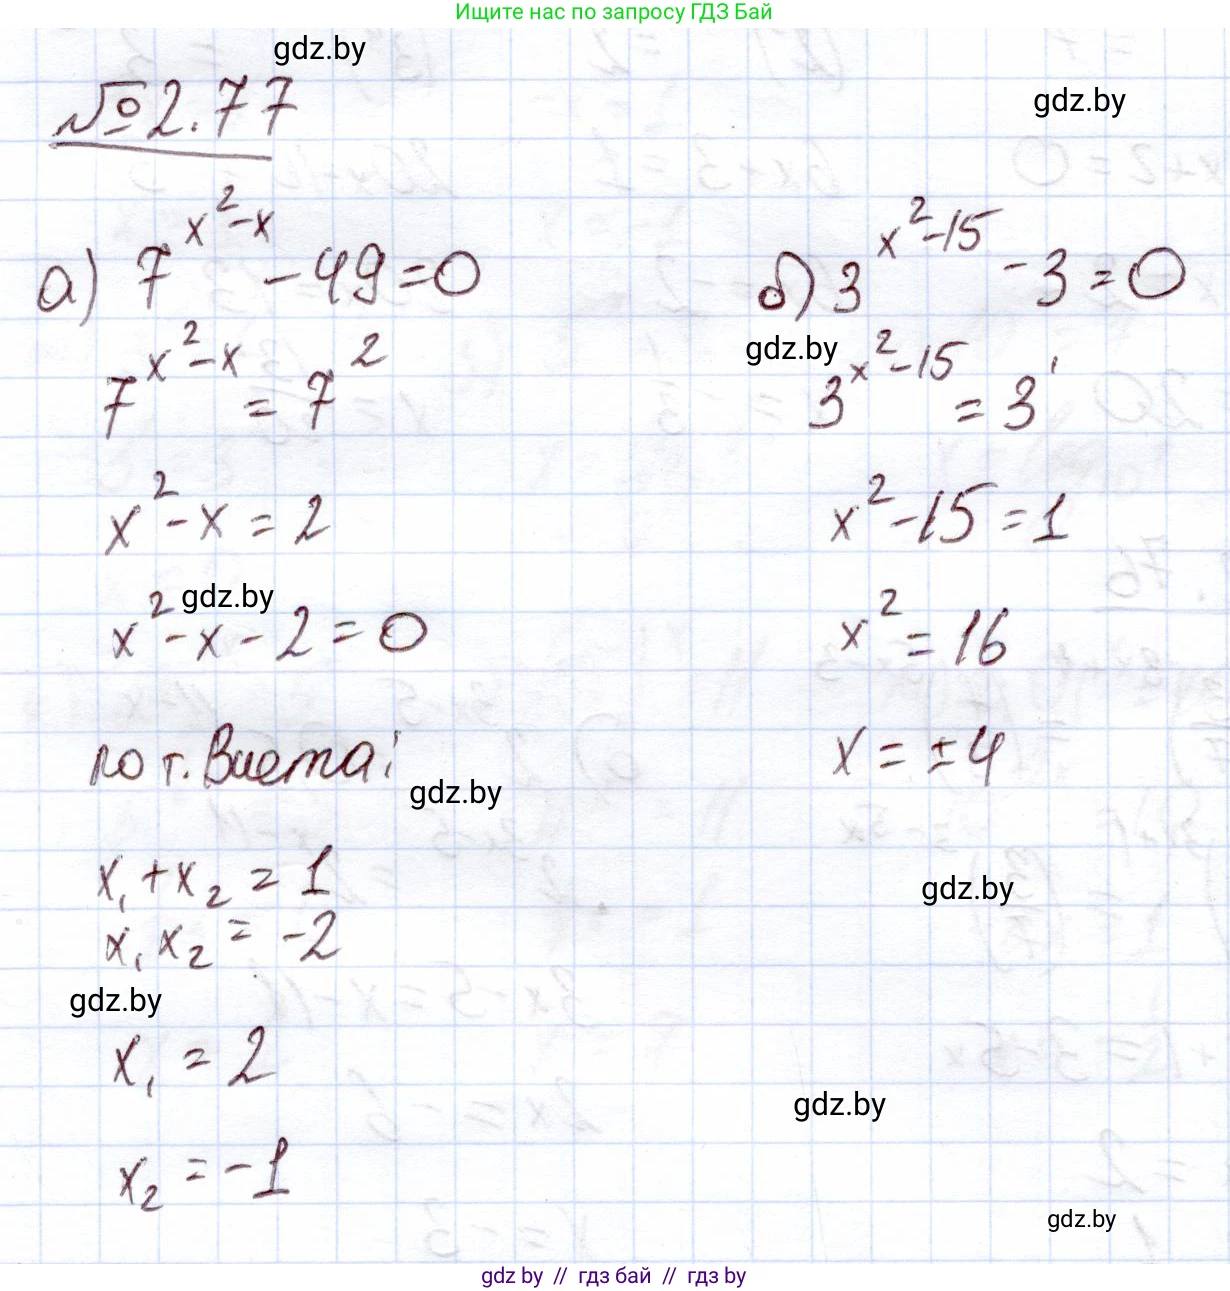 Ищите нас по запросу ГДЗ Бай
gdz.by
№2.77
gdz.by
а) 7^(x²-x) - 49 = 0
7^(x²-x) = 7²
x² - x = 2
gdz.by
x² - x - 2 = 0
по т. Виета:
gdz.by
x₁ + x₂ = 1
x₁ x₂ = -2
gdz.by
x₁ = 2
x₂ = -1
б) 3^(x²-15) - 3 = 0
gdz.by
3^(x²-15) = 3¹
x² - 15 = 1
x² = 16
x = ±4
gdz.by
gdz.by
gdz.by
gdz by // гдз бай // гдз by